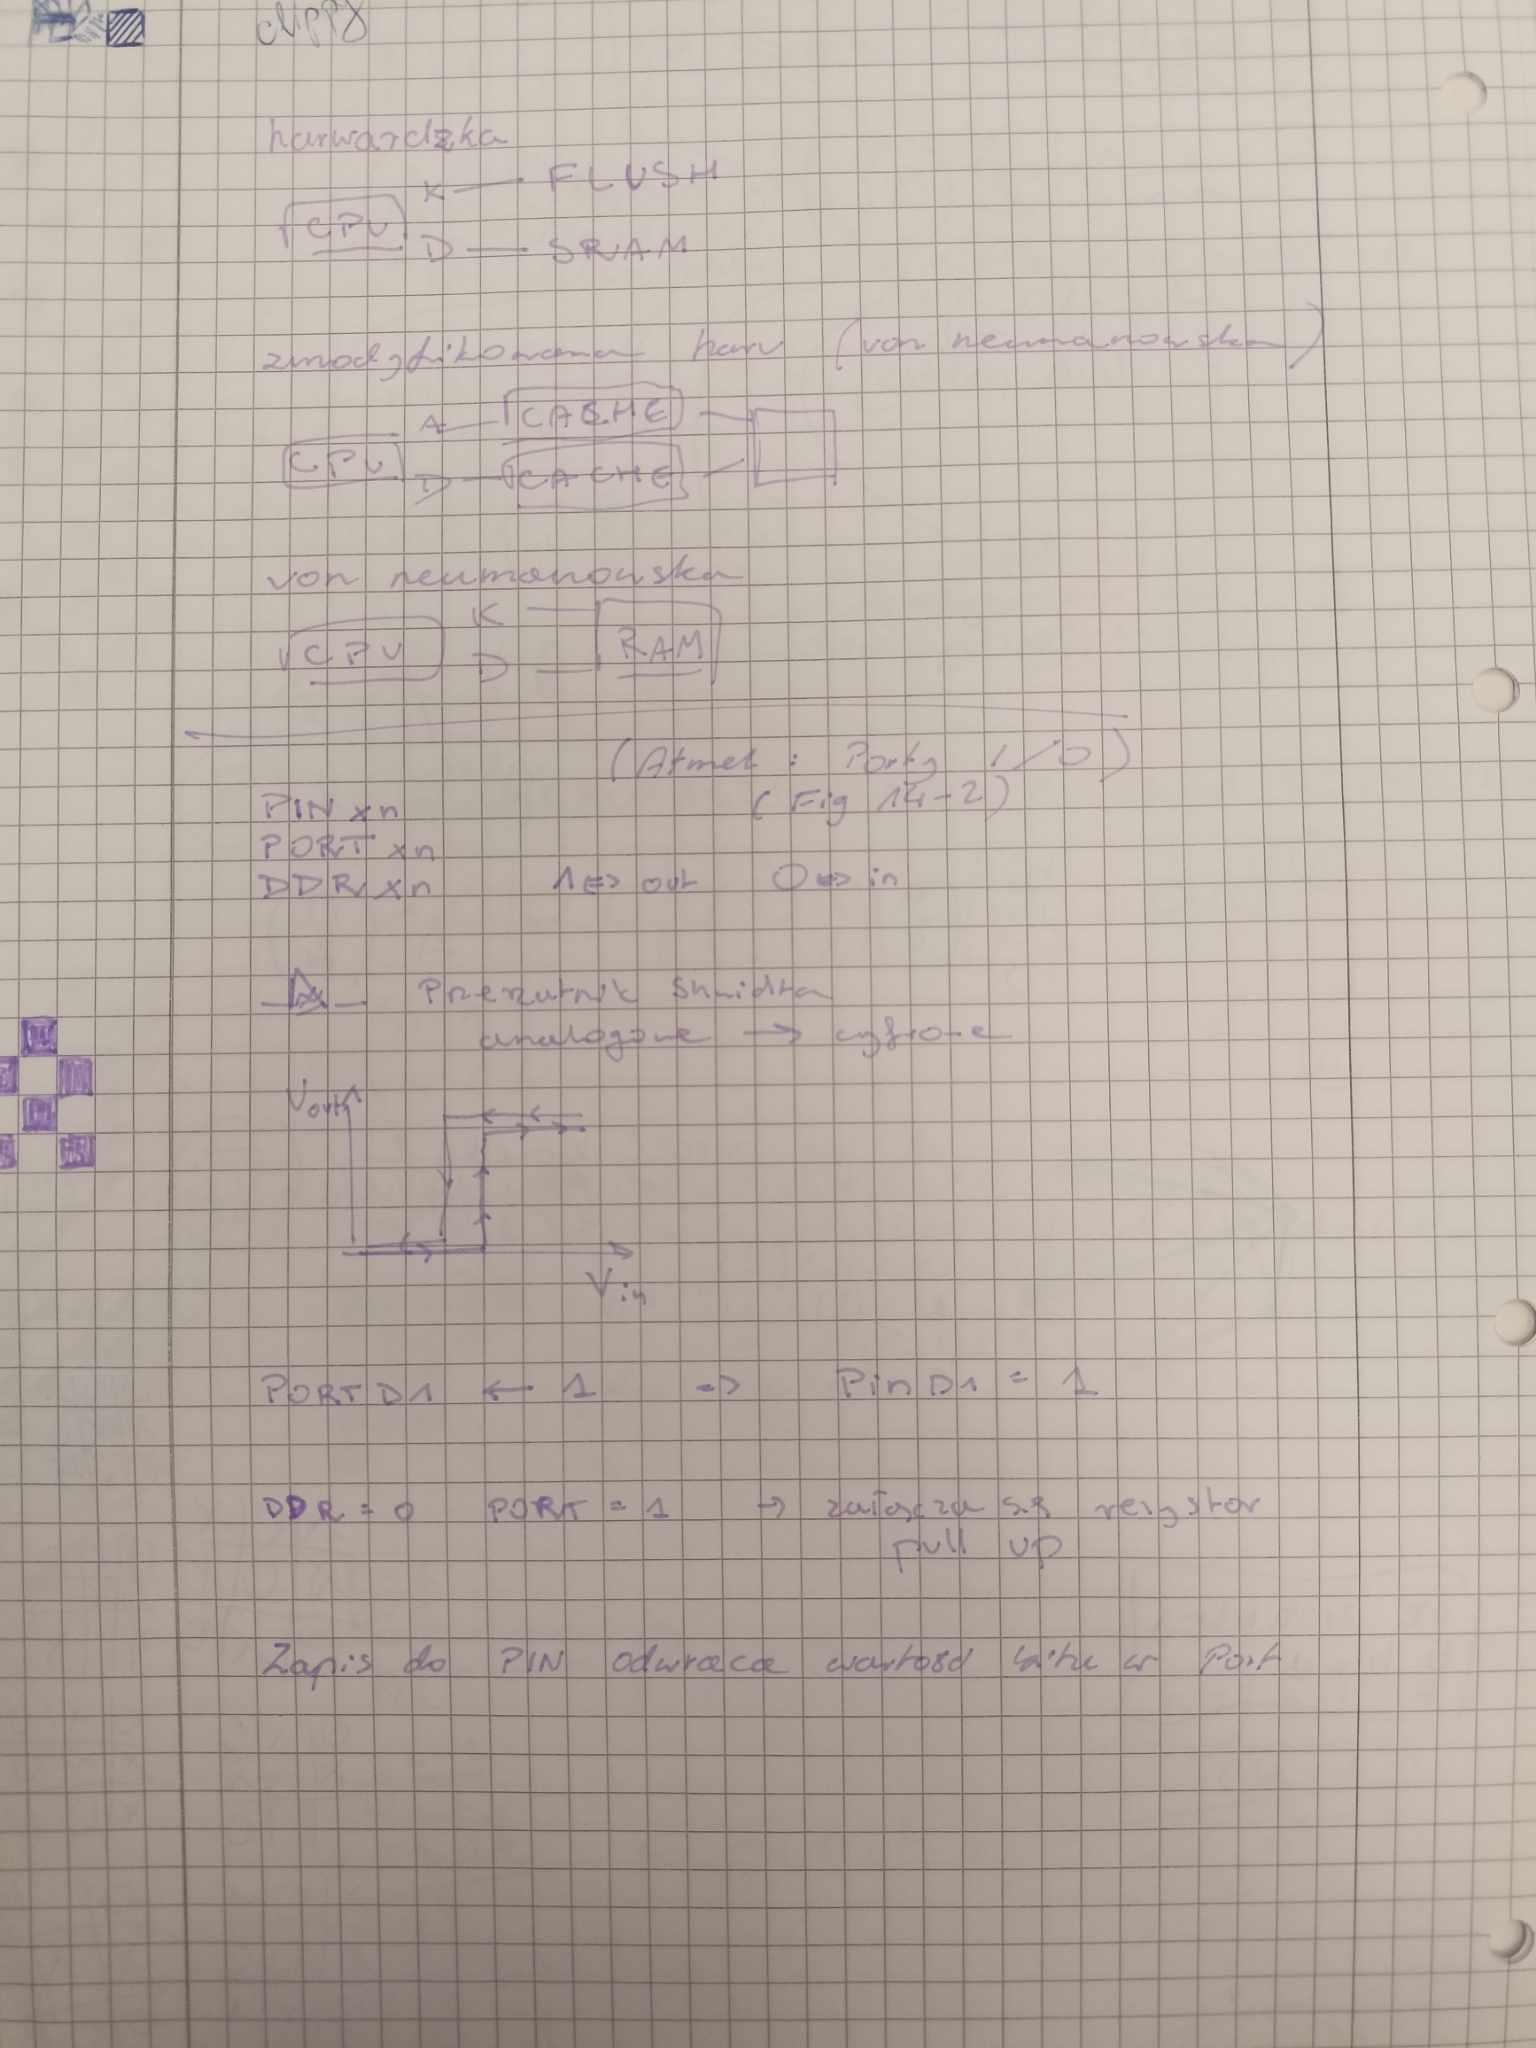 clippy
harwardzka
K — FLUSH
CPU
D — SRAM
zmodyfikowana harv (von neumanowska)
A CACHE
CPU
D CACHE
von neumanowska
K
CPU RAM
D
(Atmel : Porty I/O)
(Fig 14-2)
PIN xn
PORT xn
DDR xn 1 <=> out 0 <=> in
Przerzutnik Shmidta
analogowe → cyfrowe
Vout
Vin
PORT D1 ← 1 => Pin D1 = 1
DDR = 0 PORT = 1 → załącza się rezystor
pull up
Zapis do PIN odwraca wartość bitu w Port